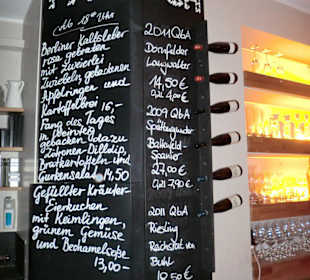 Ab 18⁰⁰ Uhr
Berliner Kalbsleber
rosa gebraten
mit zweierlei
Zwiebeln, gebackenen
Apfelringen und
Kartoffelbrei 16,-
Fang des Tages
in Bierteig
gebacken dazu
Zitronen-Dilldip,
Bratkartoffeln und
Gurkensalat 14,50
Gefüllter Kräuter-
Eierkuchen
mit Keimlingen,
grünem Gemüse
und Bechamelsoße
13,00-
2011 QbA
Dornfelder
Langwalter
14,50 €
0,2l 4,00 €
2009 QbA
Spätburgunder
Spanier
27,00 €
0,2l 7,90 €
2011 QbA
Riesling
Reichsrat von
Buhl
18,50 €